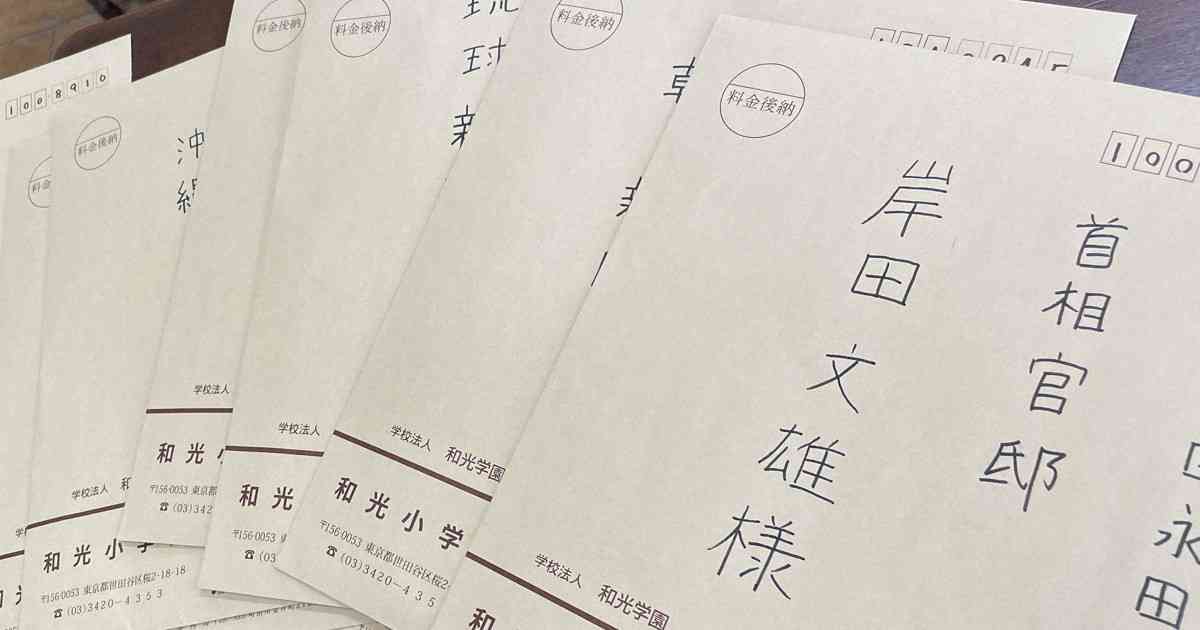 100-8910
料金後納
沖縄
学校法人
和光小学
〒156-0053 東京都世田谷区桜2-18-18
☎(03)3420-4353
学校法人
和光
〒156-0053 東京都
☎(03)342
料金後納
学校法人
和光
〒156-0053
☎(03)
料金後納
琉球新
学校法人 和光学園
和光小学
〒156-0053 東京都世田谷区桜2-
☎(03)3420-435
料金後納
料金後納
100
永田
首相官邸
岸田文雄様
学校法人 和光学園
和